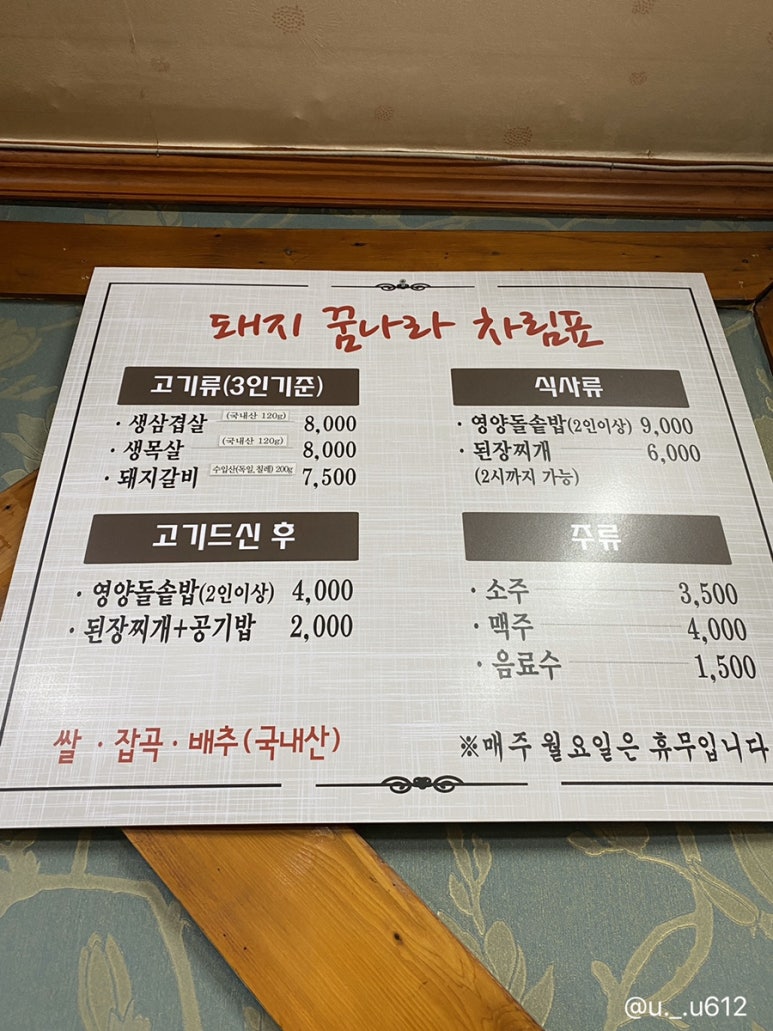 돼지 꿈나라 차림표
고기류(3인기준)
· 생삼겹살 (국내산 120g) 8,000
· 생목살 (국내산 120g) 8,000
· 돼지갈비 수입산(독일,칠레) 200g 7,500
고기드신 후
· 영양돌솥밥(2인이상) 4,000
· 된장찌개+공기밥 2,000
식사류
· 영양돌솥밥(2인이상) 9,000
· 된장찌개 6,000
(2시까지 가능)
주류
· 소주 3,500
· 맥주 4,000
· 음료수 1,500
쌀 · 잡곡 · 배추(국내산)
※매주 월요일은 휴무입니다
@u._.u612